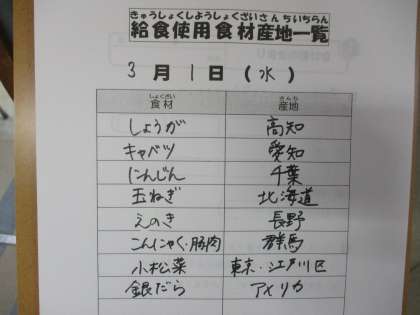 きゅうしょくしようしょくざいさんちいちらん
給食使用食材産地一覧
3月1日(水)
しょくざい さんち
食材 産地
しょうが 高知
キャベツ 愛知
にんじん 千葉
玉ねぎ 北海道
えのき 長野
こんにゃく・豚肉 群馬
小松菜 東京・江戸川区
銀だら アメリカ